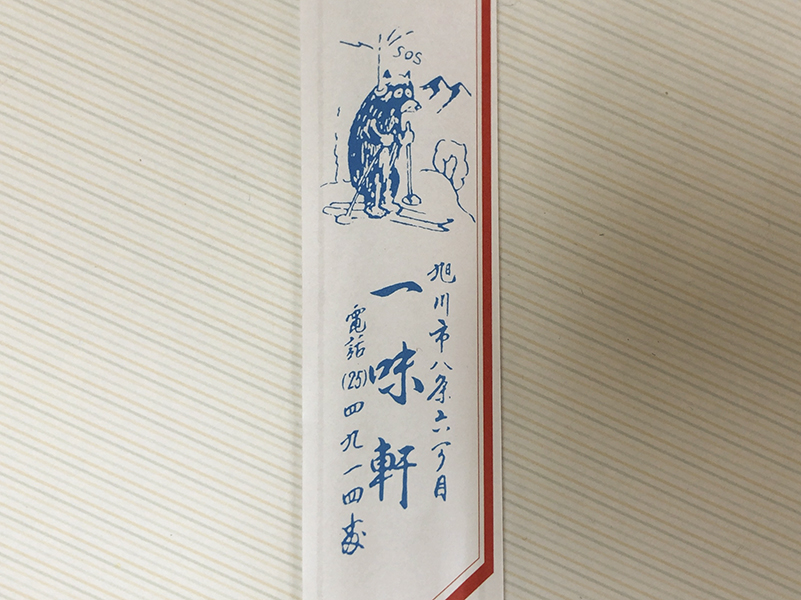 SOS
旭川市八条六丁目
一味軒
電話(25)四九一四番